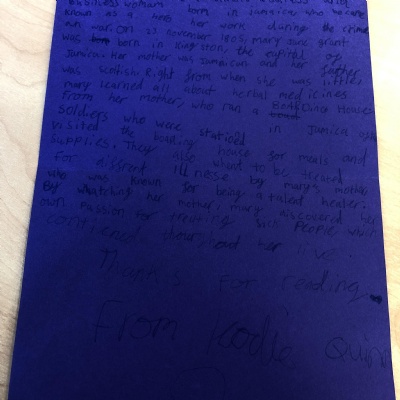 business woman born in Jamaica who became
known as a hero her work during the crime
an war. on 23 november 1805, mary Jane grant
was born in kingston, the capital of
Jamica. Her mother was Jamaican and her father
was scotish. Right from when she was little
mary learned all about herbal medicines
From her mother, who ran a House
Soldiers who were stationd in Jamica
visited the boarding house for meals and
supplies. They also want to be treated
for diffrent illnisse by mary's mother
who was known for being a talent healer.
By whatching her mother, mary discovered her
own passion for treating sick people which
continued thour out her live.
Thanks for reading
From kodie Quinn